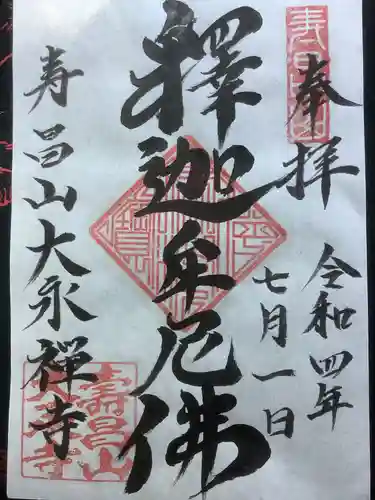 奉拝
令和四年
七月一日
釋迦牟尼佛
寿昌山大永禅寺
寿昌山
壽昌山